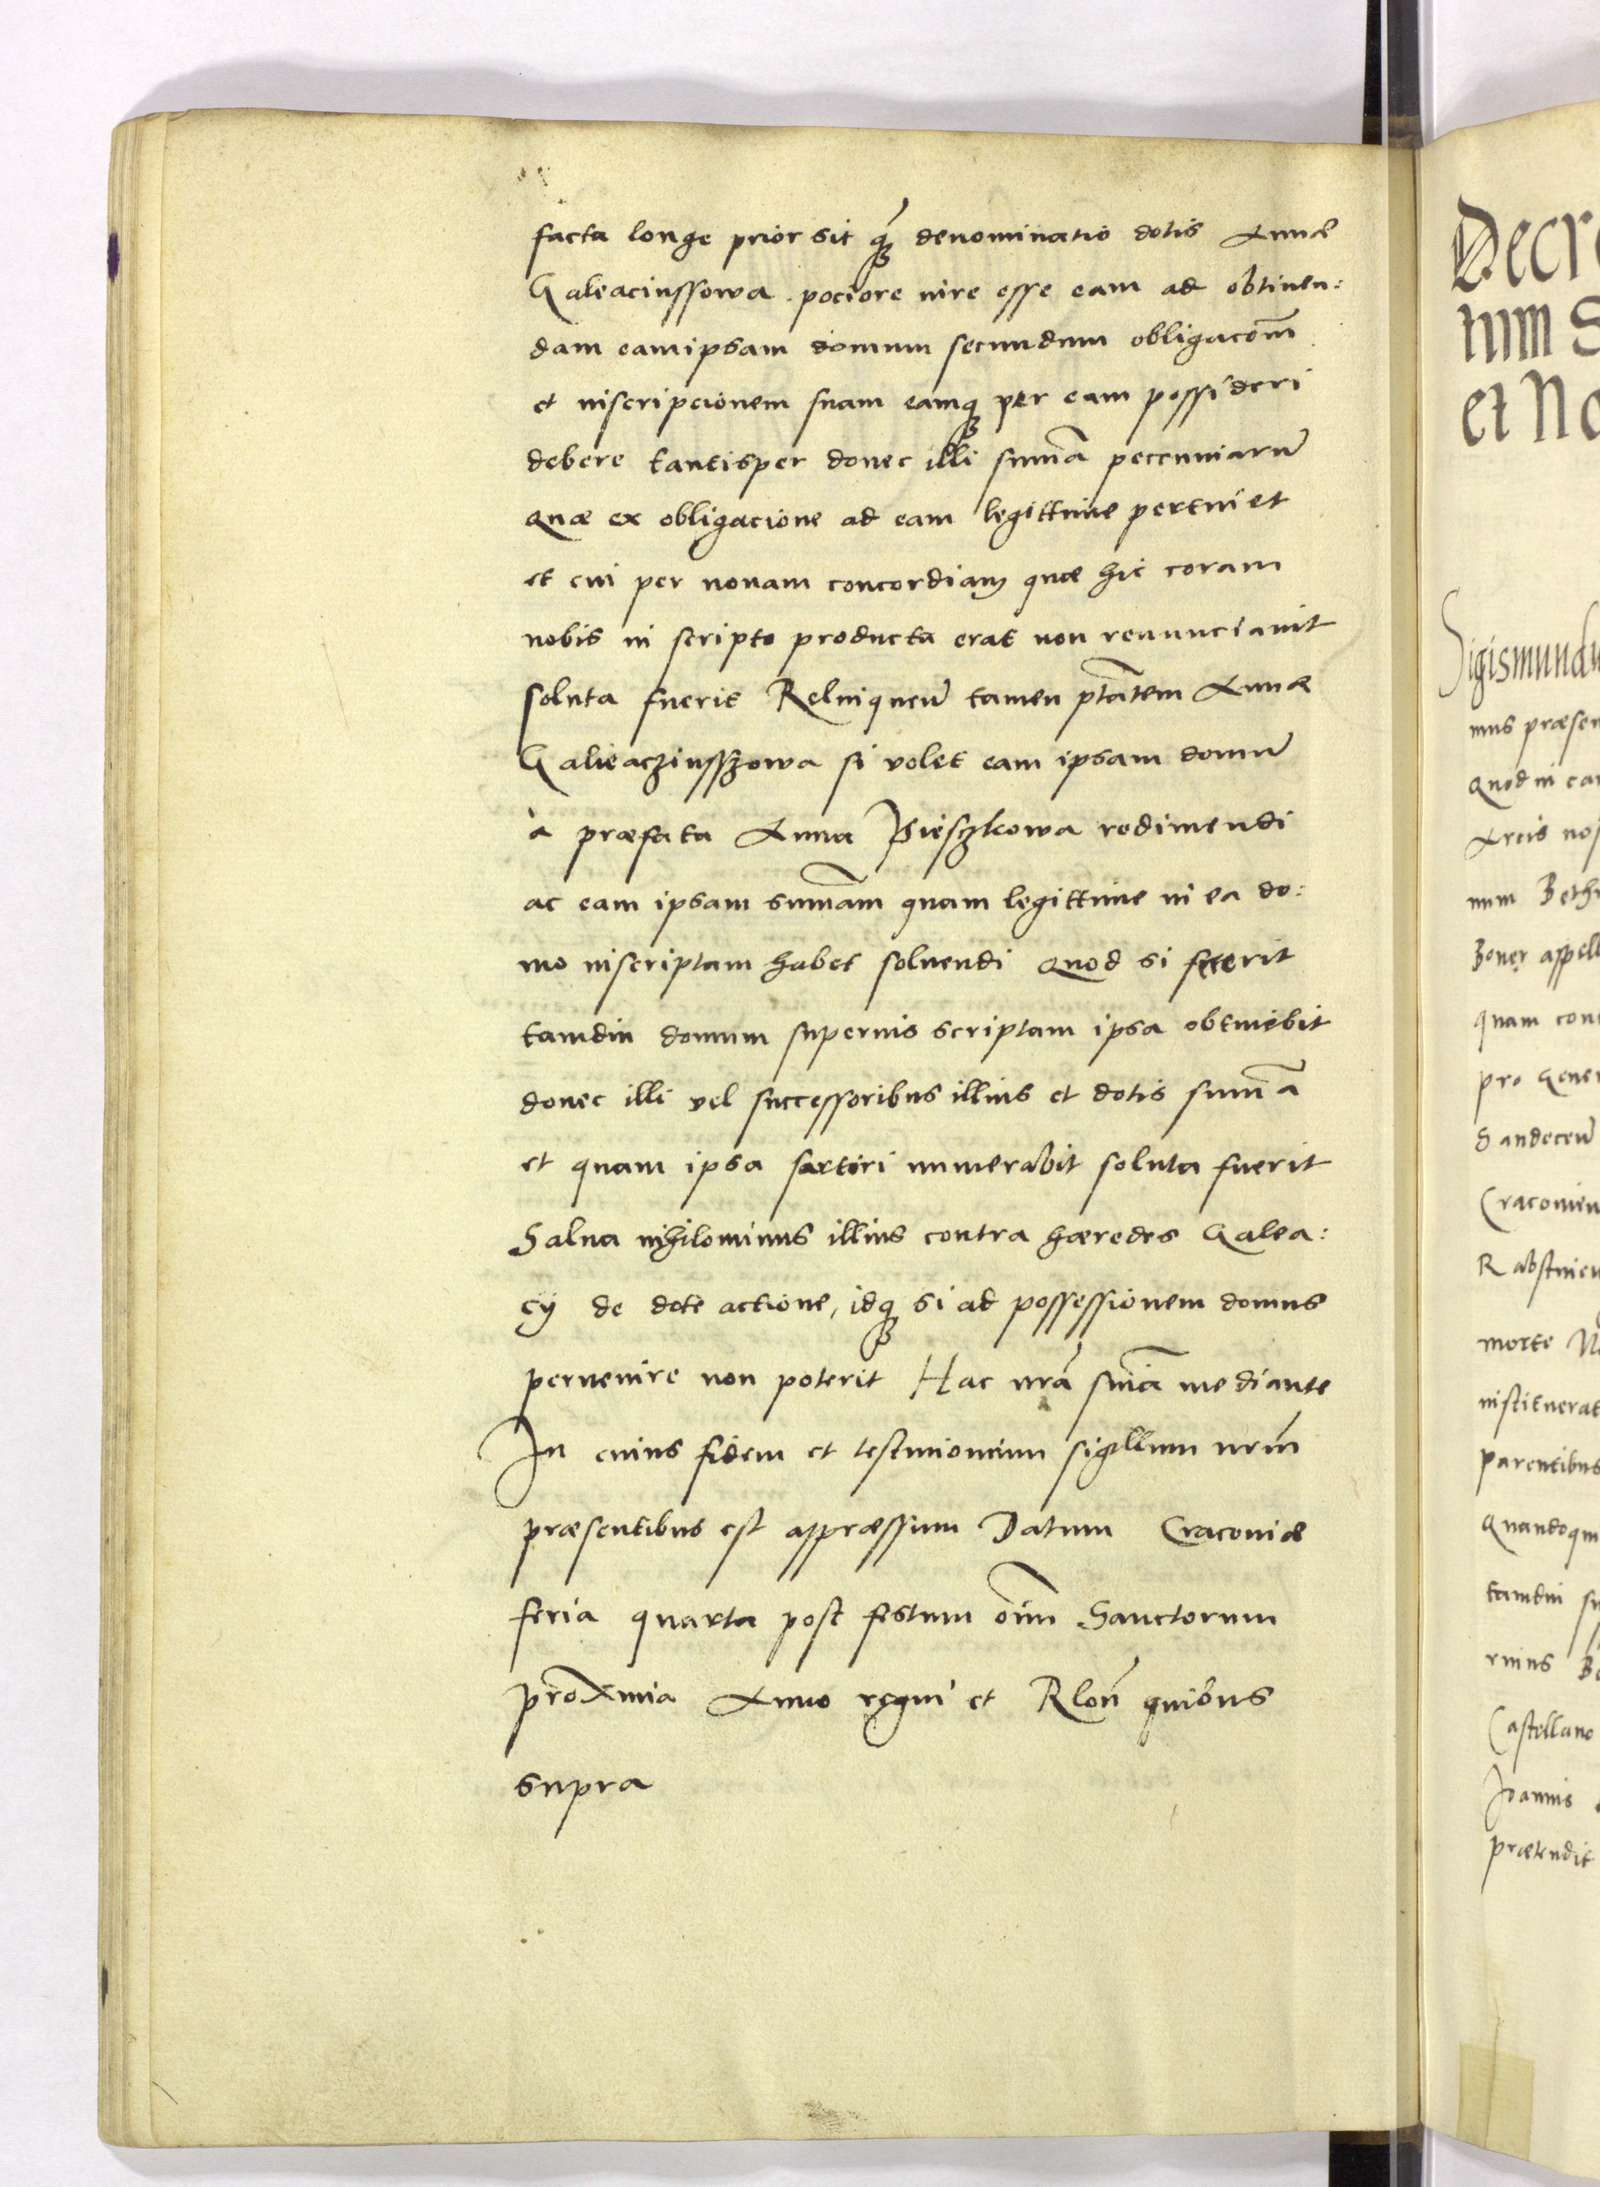 facta longe prior sit q̃ꝫ denominatio dotis Annæ
Galeaciussowa. pociore iure esse eam ad obtinen:
dam eamipsam domum secundum obligacoẽm
et inscripcionem suam eamqꝫ per eam possideri
debere tantisper donec illi sum̃a peccuniarũ
quæ ex obligacione ad eam legittime pertinet
et cui per nouam concordiam quæ hic coram
nobis in scripto producta erat non renunciauit
soluta fuerit Relinquẽ tamen ptãtem Annæ
Galieacziusszowa si volet eam ipsam domũ
à præfata Anna Pieszkowa redimendi
ac eam ipsam sum̃am quam legittime in ea do:
mo inscriptam habet soluendi Quod si fecerit
tamdiu domum superius scriptam ipsa obtinebit
donec illi vel successoribus illius et dotis sum̃a
et quam ipsa sartori numerabit soluta fuerit
Salua nihilominus illius contra hæredes Galea:
cij de dote actione, idqꝫ si ad possessionem domus
peruenire non poterit Hac nr̃a sñia mediante
In cuius fidem et testimonium sigillum nrm̃
præsentibus est appræssum Datum Cracouiæ
feria quarta post festum oim̃ Sanctorum
proxima Anno regni et Rloñ quibus
supra
Decr
num S
et No
Sigismundu
mus præsen
Quod in cau
Arcis nos
num Beth
Boner appell
quam cont
pro Gener
Sandeceñ
Cracouien
Rabstnien
morte N
instituerat
parentibus
Quandoqui
tamdiu su
rinus Bo
Castellano
Joannis
prætendit